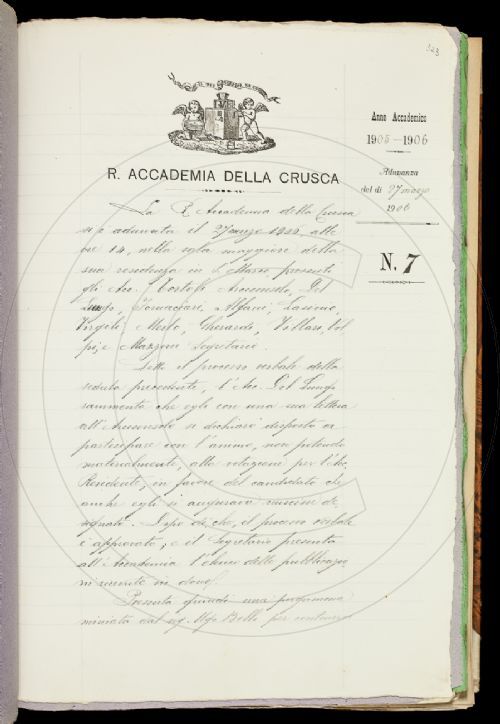 323
R. ACCADEMIA DELLA CRUSCA
Anno Accademico
1905-1906
Adunanza
del dì 27 marzo
1906
N. 7
La R. Accademia della Crusca
si è adunata il 27 marzo alle
ore 14, nella sala maggiore della
sua residenza in S. Marco, presenti
gli Acc. Tortoli Arciconsolo, Del
Lungo, Tomma, Alfani,
Virgili, Mestica, Gherardi, Villari, Vol
pi, e Mazzoni Segretario.
Letto il processo verbale della
seduta precedente, l'Acc. Del Lungo
rammenta che egli con una sua lettera
all'Arciconsolo si dichiarò disposto a
partecipare con l'animo, non potendo
materialmente, alla votazione per l'Acc.
Residente, in favore del candidato che
anche egli si augurava riuscisse de
signato. Dopo di che, il processo verbale
è approvato; e il Segretario presenta
all'Accademia l'elenco delle pubblicazio
ni ricevute in dono.
Presenta quindi una pergamena
miniata dal sig. Ugo Bello per